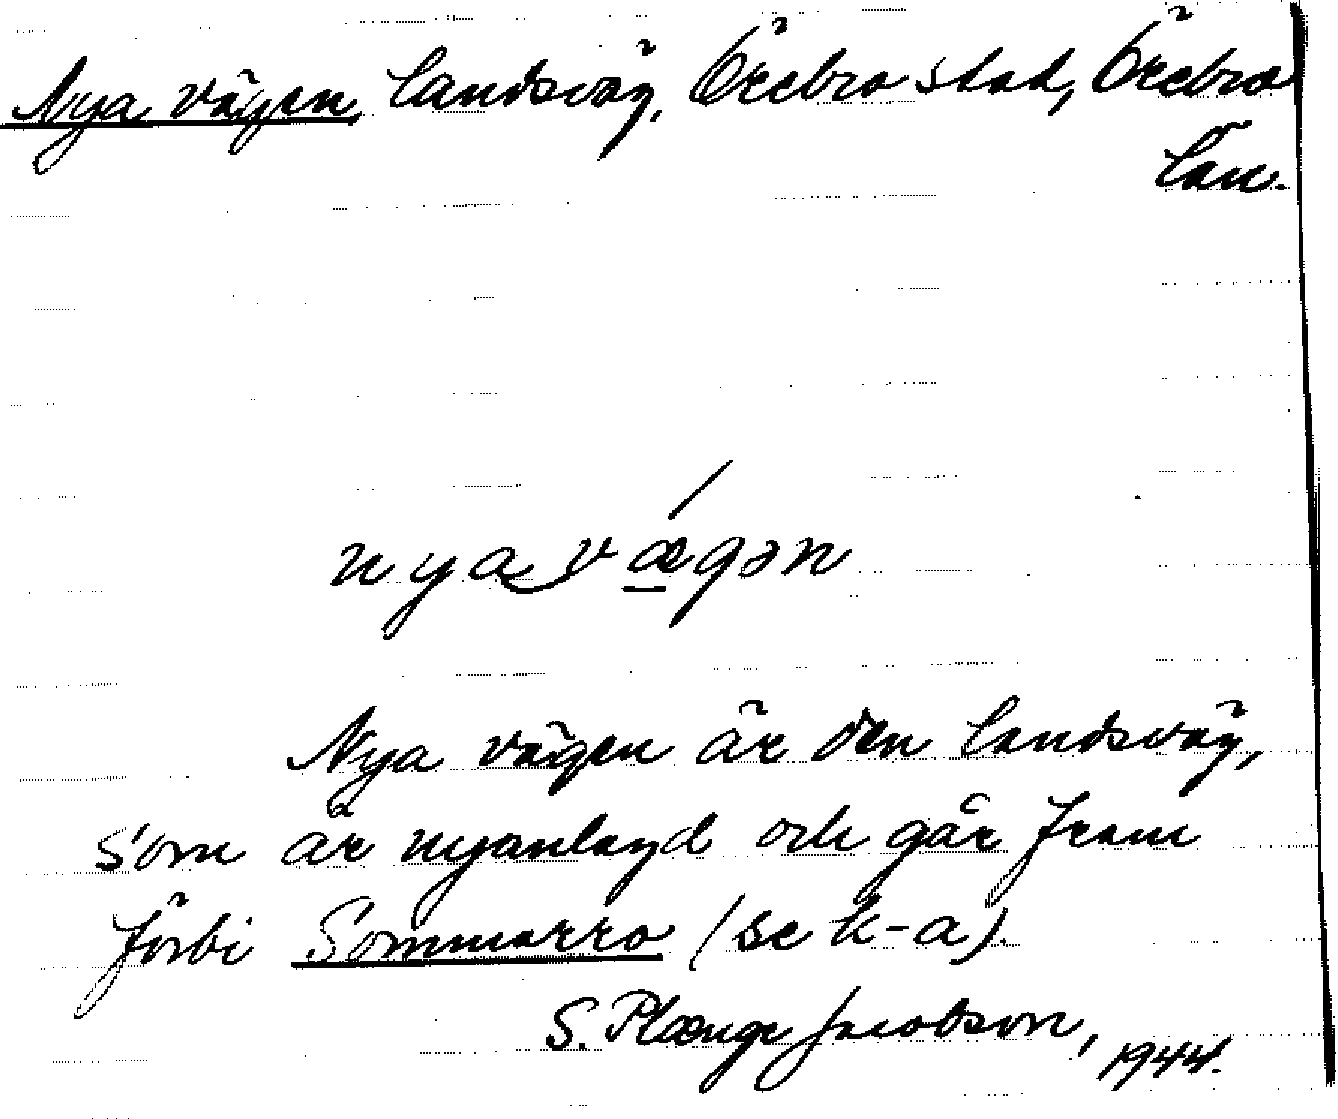 Nya vägen, landsväg, Örebro stad, Örebro
län.
nya‿vǽgən
Nya vägen är den landsväg,
som är nyanlagd och går fram
förbi Sommarro (se k-a).
S. Plænge Jacobson,
1944.